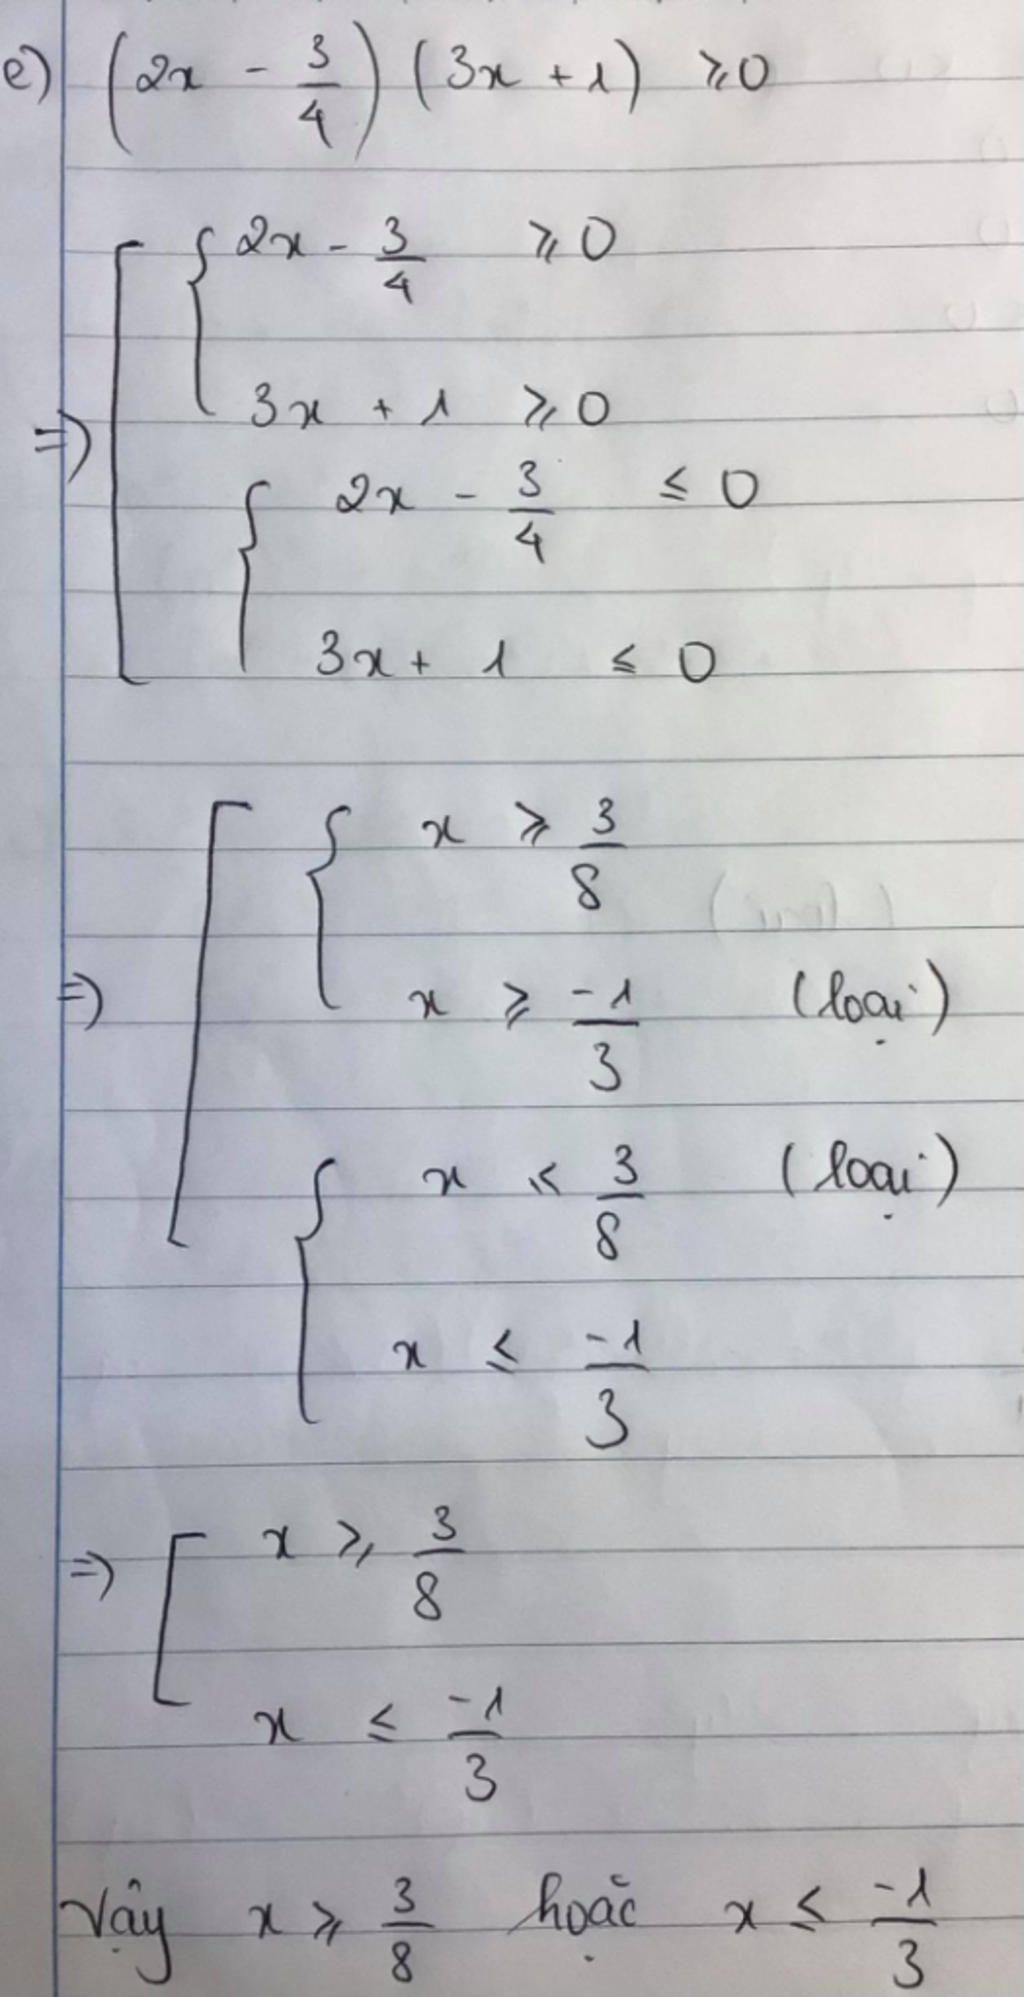 e) (2x - 3/4) (3x + 1) ⩾ 0
2x - 3/4 ⩾ 0
3x + 1 ⩾ 0
=>
2x - 3/4 ≤ 0
3x + 1 ≤ 0
x ⩾ 3/8
=> x ⩾ -1/3 (loại)
x ≤ 3/8 (loại)
x ≤ -1/3
=> x ⩾ 3/8
x ≤ -1/3
Vậy x ⩾ 3/8 hoặc x ≤ -1/3